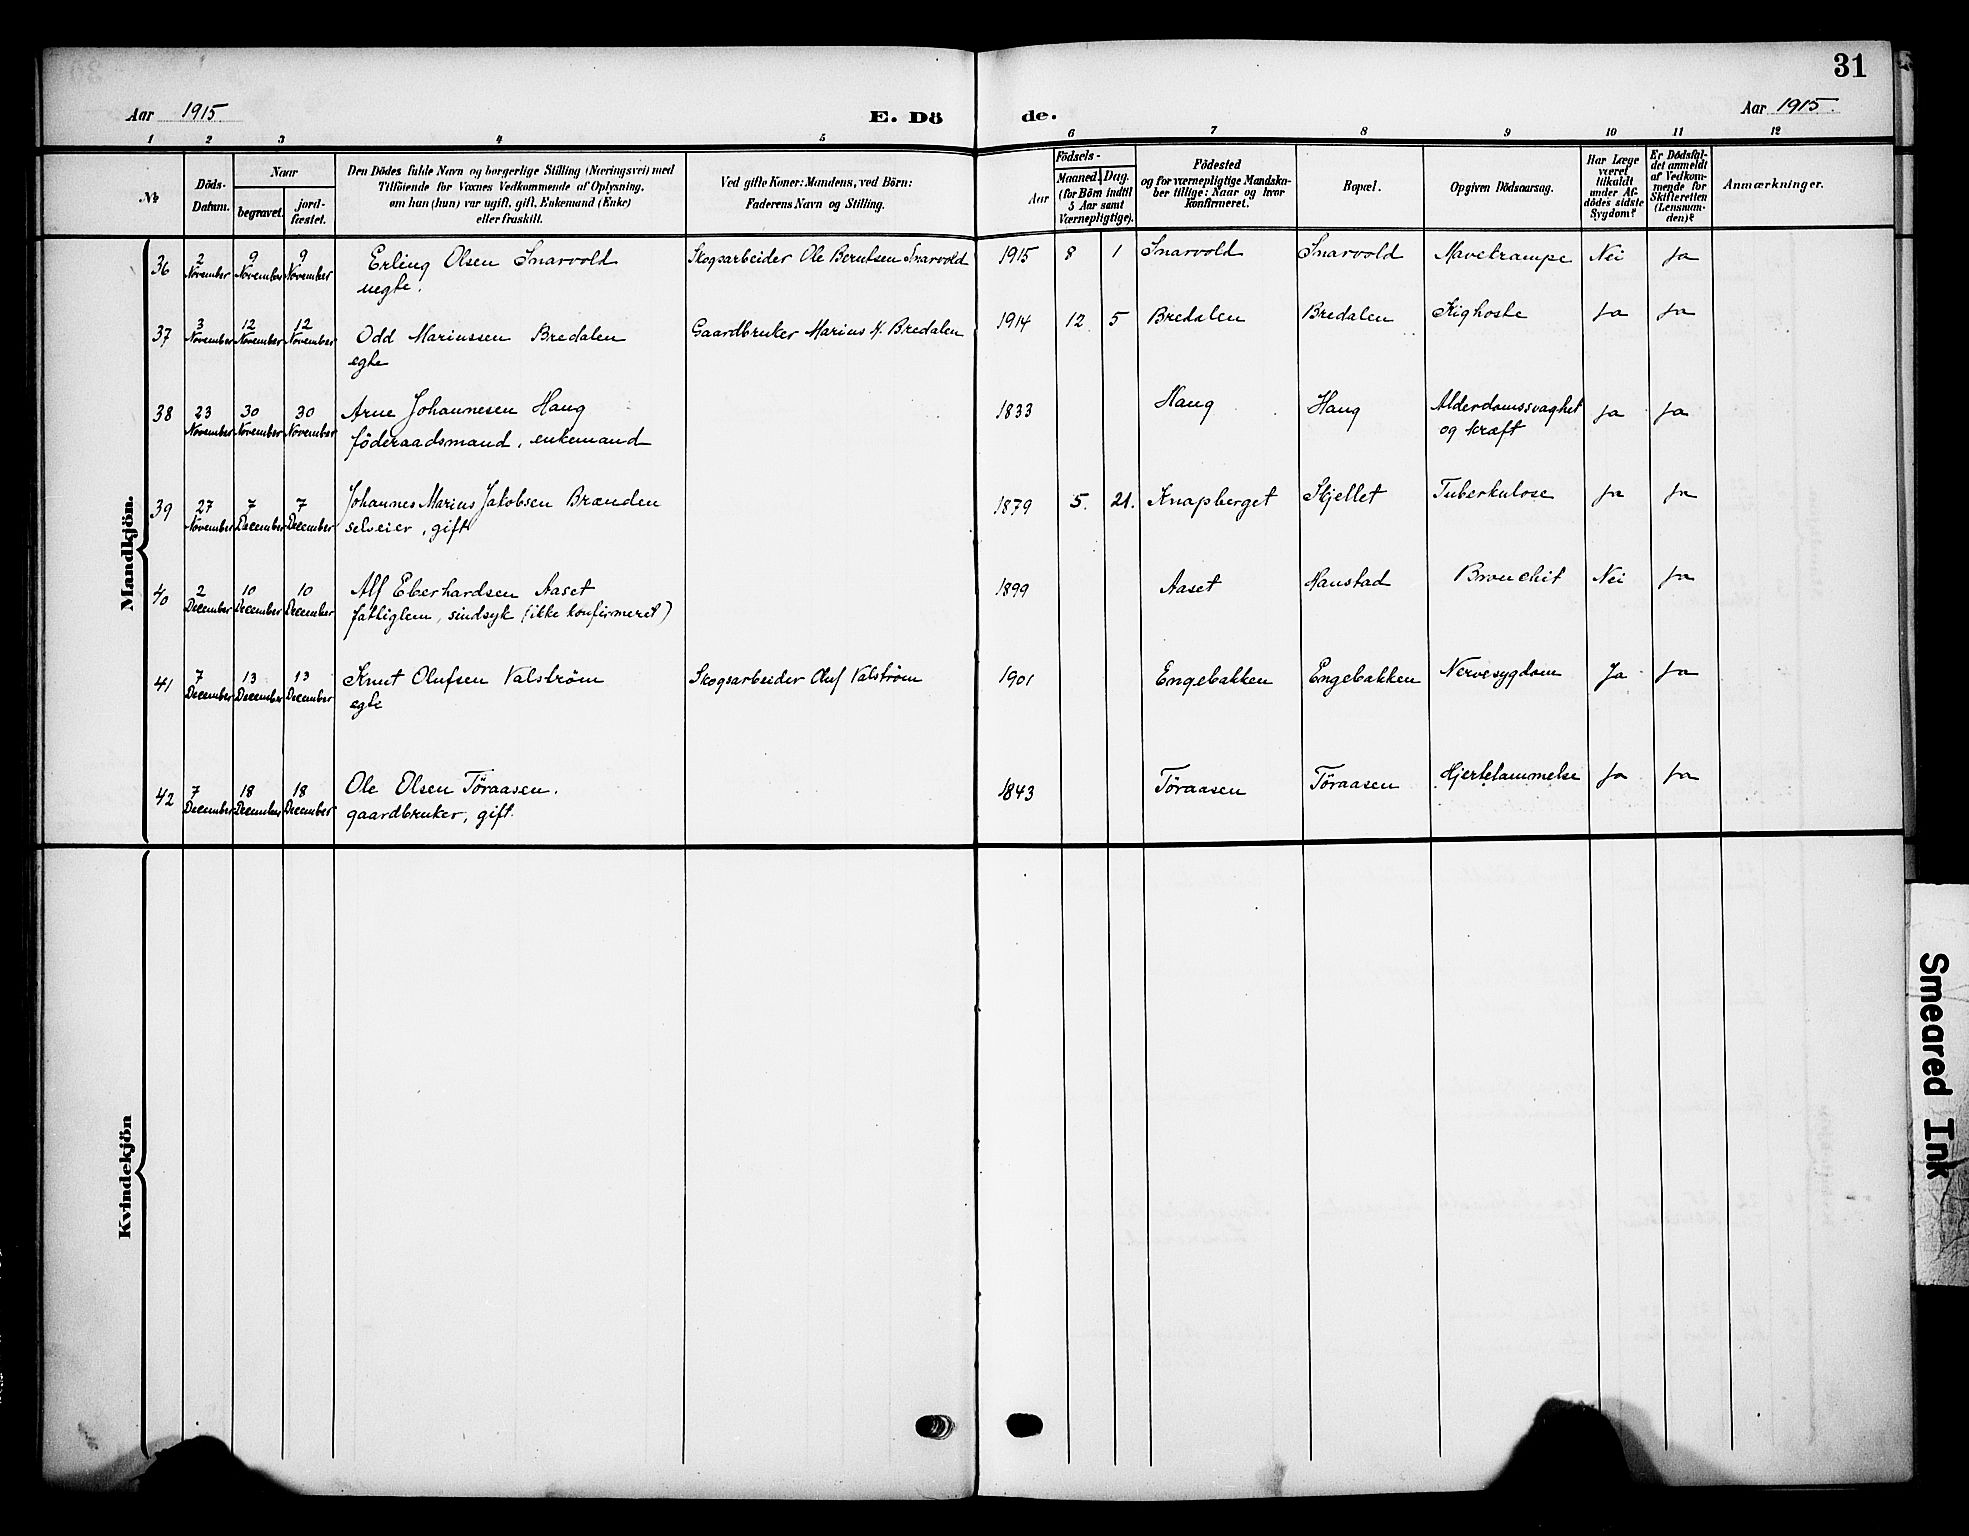 31
Aar 1915
E. Dö de.
Aar 1915.
1 2 3 4 5 6 7 8 9 10 11 12
№
Döds-
Datum.
Naar
begravet.
jord-
fæstet.
Den Dödes fulde Navn og borgerlige Stilling (Næringsvei) med
Tilföiende for Voxnes Vedkommende af Oplysning,
om han (hun) var ugift, gift, Enkemand (Enke)
eller fraskilt.
Ved gifte Koner: Mandens, ved Börn:
Faderens Navn og Stilling.
Födsels-
Aar
Maaned. Dag.
(for Börn indtil
5 Aar samt
Værnepligtige).
Födested
og for værnepligtige Mandska-
ber tillige: Naar og hvor
konfirmeret.
Bopæl.
Opgiven Dödsaarsag.
Har Læge
været
tilkaldt
under Af-
dödes sidste
Sygdom?
Er Dödsfal-
det anmeldt
af Vedkom-
mende for
Skifteretten
(Lensman-
den)?
Anmærkninger.
Mandkjön.
36 2 November 9 November 9 November Erling Olsen Snarvold Skogsarbeider Ole Berntsen Snarvold 1915 8 1 Snarvold Snarvold Mavekrampe Nei Ja
uegte.
37 3 November 12 November 12 November Odd Mariussen Bredalen Gaardbruker Marius K. Bredalen 1914 12. 5 Bredalen Bredalen Kighoste Ja Ja
egte
38 23 November 30 November 30 November Arne Johannesen Haug 1833 Haug Haug Alderdomssvaghet Ja Ja
föderaadsmand, enkemand og kræft
39 27 November 7 December 7 December Johannes Marius Jakobsen Brænden 1879 5. 21. Knapberget Skjellet Tuberkulose Ja Ja
selveier, gift
40 2 December 10 December 10 December Alf Eberhardsen Aaset 1899 Aaset Hanstad Bronchit Nei Ja
fattiglem, sindsyk (ikke konfirmeret)
41 7 December 13 December 13 December Knut Olufsen Valstrøm Skogsarbeider Oluf Valstrøm 1901 Engebakken Engebakken Nervesygdom Ja Ja
egte
42 7 December 18 December 18 December Ole Olsen Töraasen. 1843 Töraasen Töraasen Hjertelammelse Ja Ja
gaardbruker, gift.
Kvindekjön
Smeared Ink